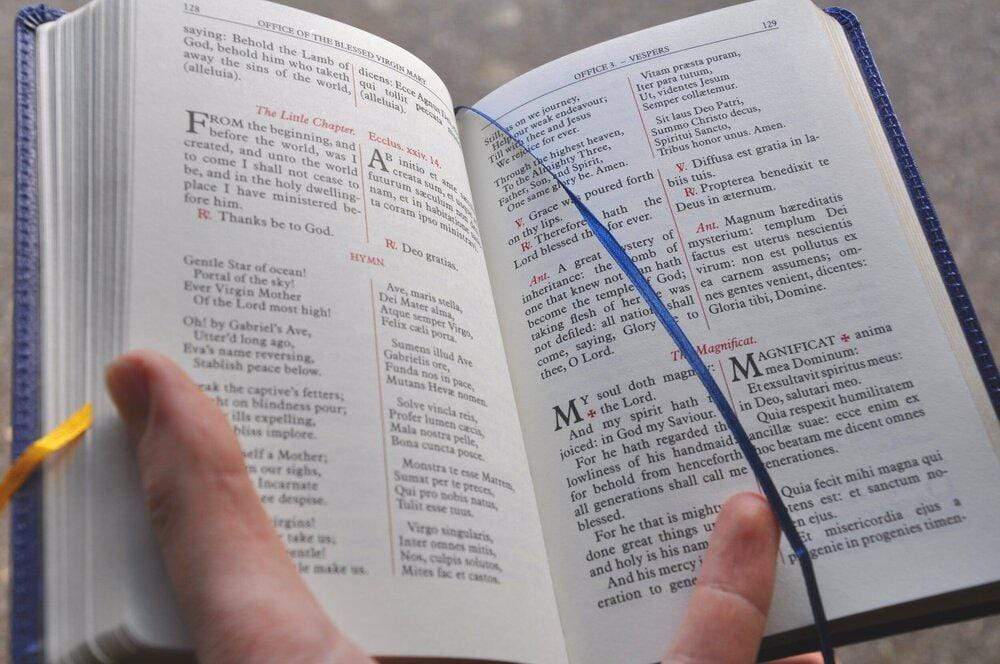 128
OFFICE OF THE BLESSED VIRGIN MARY
saying: Behold the Lamb of
God, behold him who taketh
away the sins of the world,
(alleluia).
dicens: Ecce Agnus
qui tollit peccata
(alleluia).
The Little Chapter.
Ecclus. xxiv. 14.
FROM the beginning, and
before the world, was I
created, and unto the world
to come I shall not cease to
be, and in the holy dwelling-
place I have ministered be-
fore him.
℟. Thanks be to God.
AB initio et ante
creata sum, et
futurum sæculum non
nam, et in habitatione
ta coram ipso ministravi
℟. Deo gratias.
HYMN.
Gentle Star of ocean!
Portal of the sky!
Ever Virgin Mother
Of the Lord most high!
Oh! by Gabriel's Ave,
Utter'd long ago,
Eva's name reversing,
Stablish peace below.
the captive's fetters;
on blindness pour;
ills expelling,
bliss implore.
a Mother;
our sighs,
Incarnate
despise.
take us;
make us.
Ave, maris stella,
Dei Mater alma,
Atque semper Virgo,
Felix cæli porta.
Sumens illud Ave
Gabrielis ore,
Funda nos in pace,
Mutans Hevæ nomen.
Solve vincla reis,
Profer lumen cæcis,
Mala nostra pelle,
Bona cuncta posce.
Monstra te esse Matrem,
Sumat per te preces,
Qui pro nobis natus,
Tulit esse tuus.
Virgo singularis,
Inter omnes mitis,
Nos, culpis solutos,
Mites fac et castos.
OFFICE 3. – VESPERS
129
Still, as on we journey,
Help our weak endeavour;
Till with thee and Jesus
We rejoice for ever.
Through the highest heaven,
To the Almighty Three,
Father, Son, and Spirit,
One same glory be. Amen.
℣. Grace was poured forth
on thy lips.
℟. Therefore hath the
Lord blessed thee for ever.
Ant. A great mystery of
inheritance: the womb of
one that knew not man hath
become the temple of God;
taking flesh of her he was
not defiled: all nations shall
come, saying, Glory be to
thee, O Lord.
Vitam præsta puram,
Iter para tutum,
Ut, videntes Jesum
Semper collætemur.
Sit laus Deo Patri,
Summo Christo decus,
Spiritui Sancto,
Tribus honor unus. Amen.
℣. Diffusa est gratia in la-
biis tuis.
℟. Propterea benedixit te
Deus in æternum.
Ant. Magnum hæreditatis
mysterium: templum Dei
factus est uterus nescientis
virum: non est pollutus ex
ea carnem assumens; om-
nes gentes venient, dicentes:
Gloria tibi, Domine.
The Magnificat.
MY soul doth magnify
✠ the Lord.
And my spirit hath
joiced: in God my Saviour.
For he hath regarded the
lowliness of his handmaid:
for behold from henceforth
all generations shall call me
blessed.
For he that is mighty
done great things
and holy is his name
And his mercy
eration to
MAGNIFICAT ✠ anima
mea Dominum:
Et exsultavit spiritus meus:
in Deo, salutari meo.
Quia respexit humilitatem
ancillæ suæ: ecce enim ex
hoc beatam me dicent omnes
generationes.
Quia fecit mihi magna qui
potens est: et sanctum no-
men ejus.
Et misericordia ejus a
progenie in progenies timen-